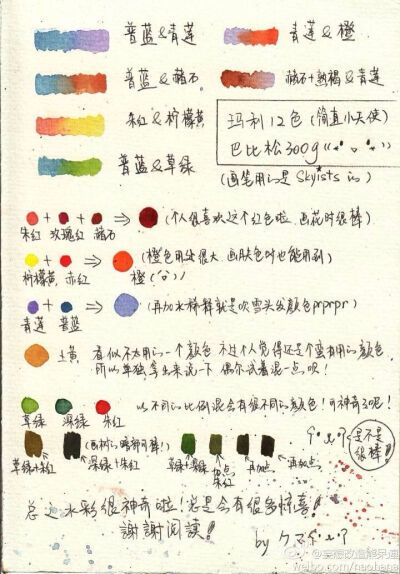 普蓝&青莲
青莲&橙
普蓝&赭石
赭石+熟褐&青莲
朱红&柠檬黄
玛利12色(简直小天使)
巴比松300g
普蓝&草绿
(画笔用的是Skyists的)
(个人很喜欢这个红色啦 画花时很棒)
朱红 玫瑰红 赭石
(橙色用处很大 画肤色时也能用到)
柠檬黄 朱红 橙
(再加水稀释就是吹雪头发颜色prprpr)
青莲 普蓝
土黄 看似不太用的一个颜色 不过个人觉得还是个蛮有用的颜色
所以单独拿出来说一下 偶尔试着混一点呗!
草绿 深绿 朱红 以不同的比例混会有很不同的颜色!可神奇了呢!
是不是很棒!
(画树的暗部可棒!)
草绿+朱红
深绿+朱红
草绿+深绿
加点朱红
再加点
再加点
总之水彩很神奇啦!总是会有很多惊喜!
謝謝阅读!
by クマ
weibo.com/naohana